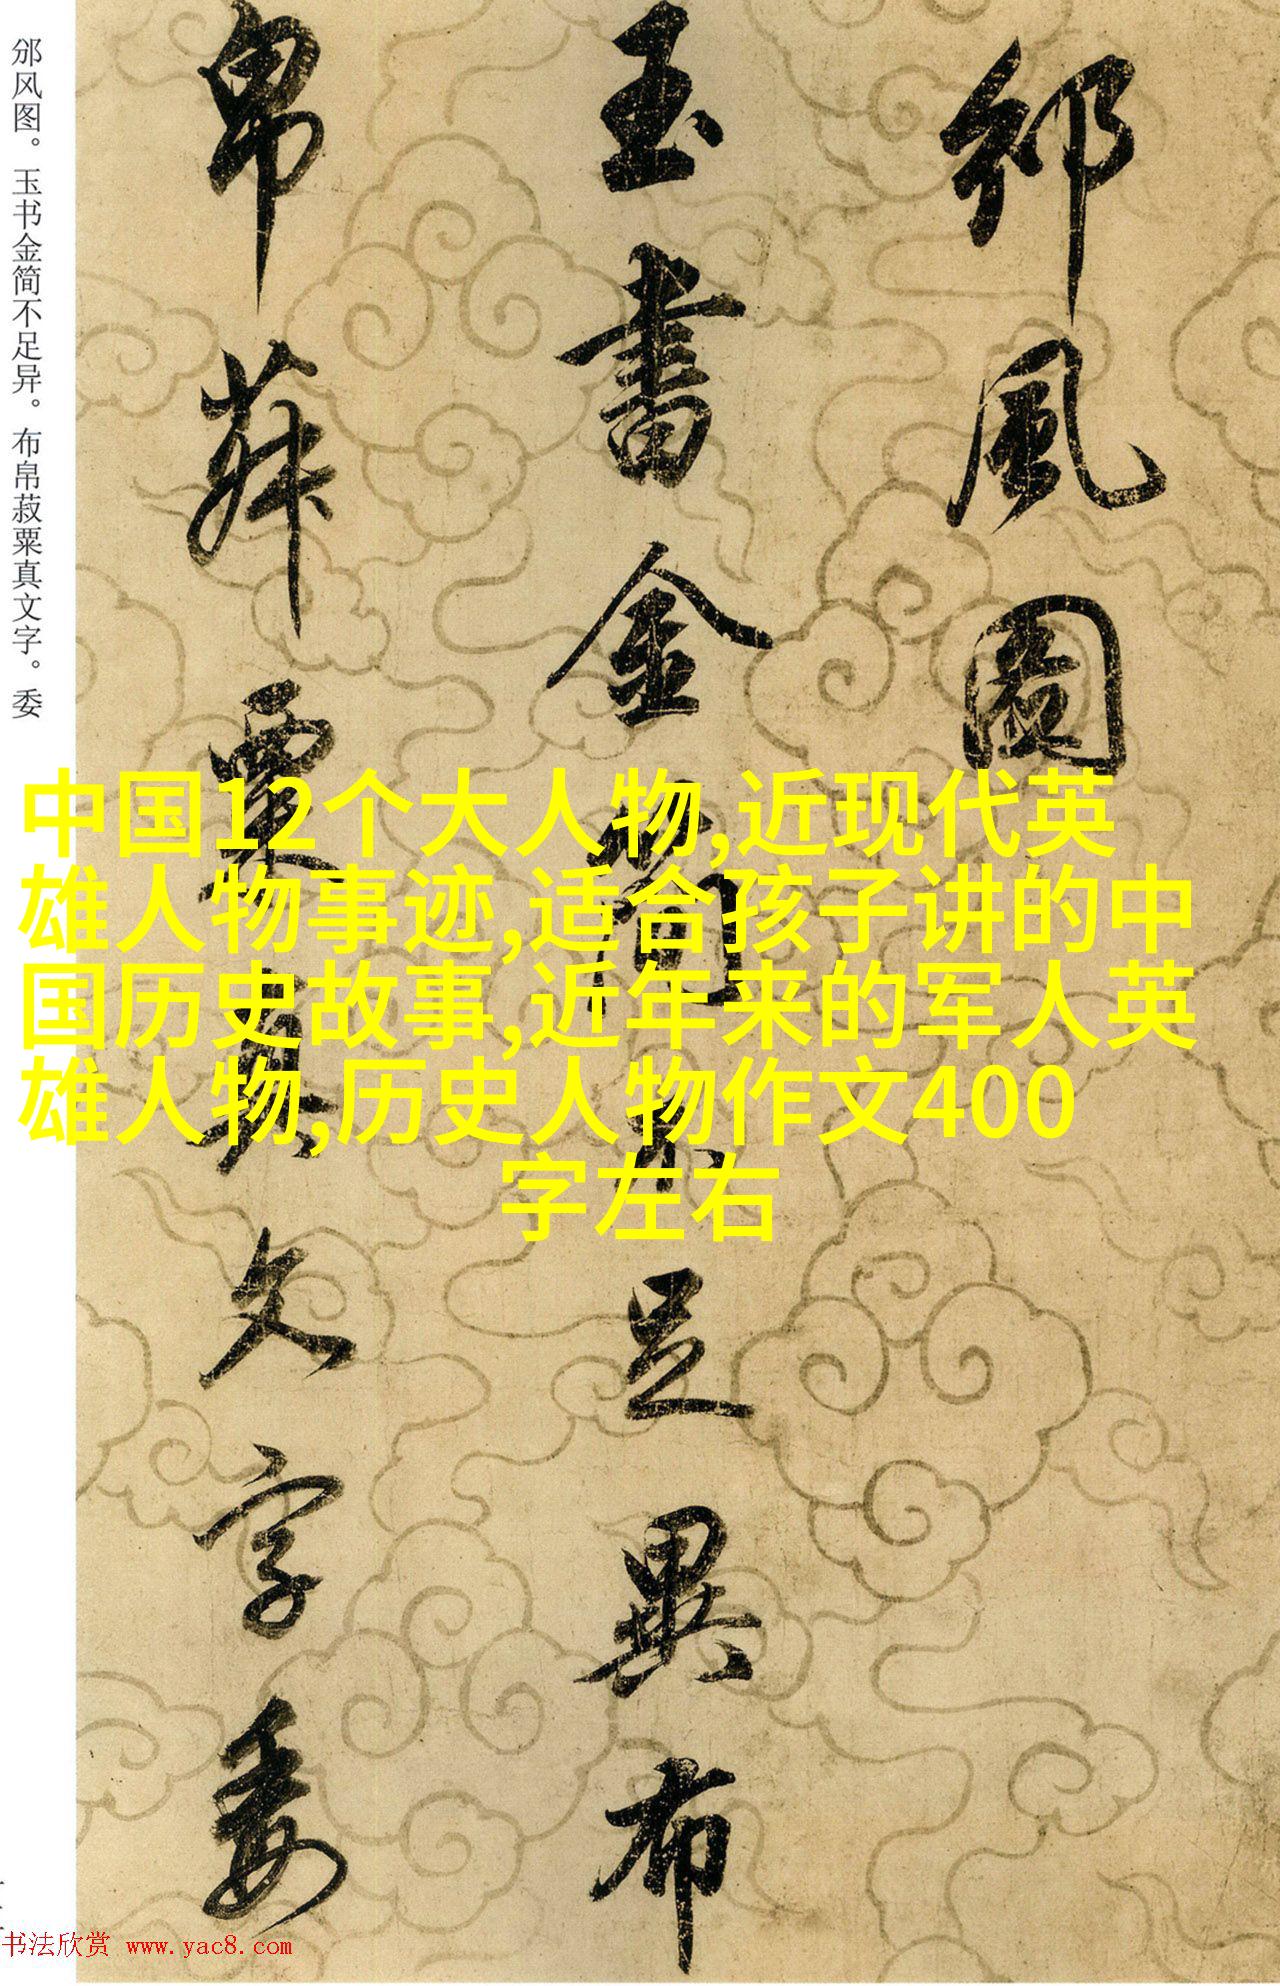 邠风图。玉书金简不足异。布帛菽粟真文字。委
邠風圖
玉書金簡不足異布
帛菽粟真文字委
中国12个大人物,近现代英
雄人物事迹,适合孩子讲的中
国历史故事,近年来的军人英
雄人物,历史人物作文400
字左右
书法欣赏 www.yac8.com